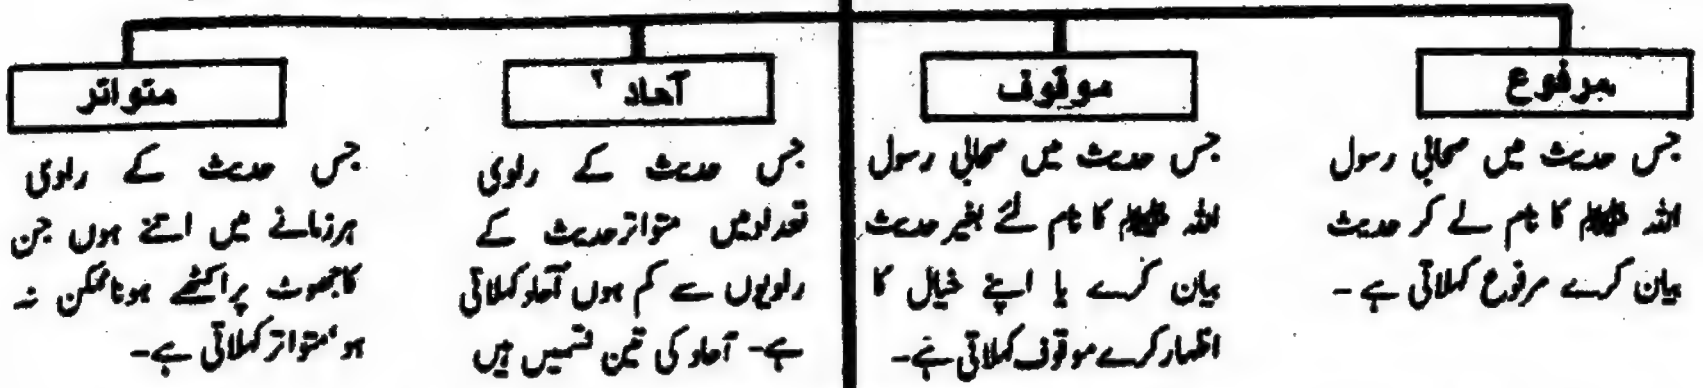 مرفوع
جس حدیث میں صحابی رسول
اللہ ﷺ کا نام لے کر حدیث
بیان کرے مرفوع کہلاتی ہے -
موقوف
جس حدیث میں صحابی رسول
اللہ ﷺ کا نام لئے بغیر حدیث
بیان کرے یا اپنے خیال کا
اظہار کرے موقوف کہلاتی ہے-
آحاد ۲
جس حدیث کے راوی
تعداد میں متواتر حدیث کے
راویوں سے کم ہوں آحاد کہلاتی
ہے- آحاد کی تین قسمیں ہیں
متواتر
جس حدیث کے راوی
ہر زمانے میں اتنے ہوں جن
کا جھوٹ پر اکٹھے ہونا ممکن نہ
ہو، متواتر کہلاتی ہے-